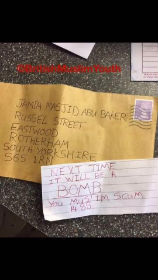 JAMIA MASJID ABU BAKER
RUSSEL STREET
EASTWOOD
ROTHERHAM
SOUTH YORKSHIRE
NEXT TIME
IT WILL BE A
BOMB
YOU MUSLIM SCUM